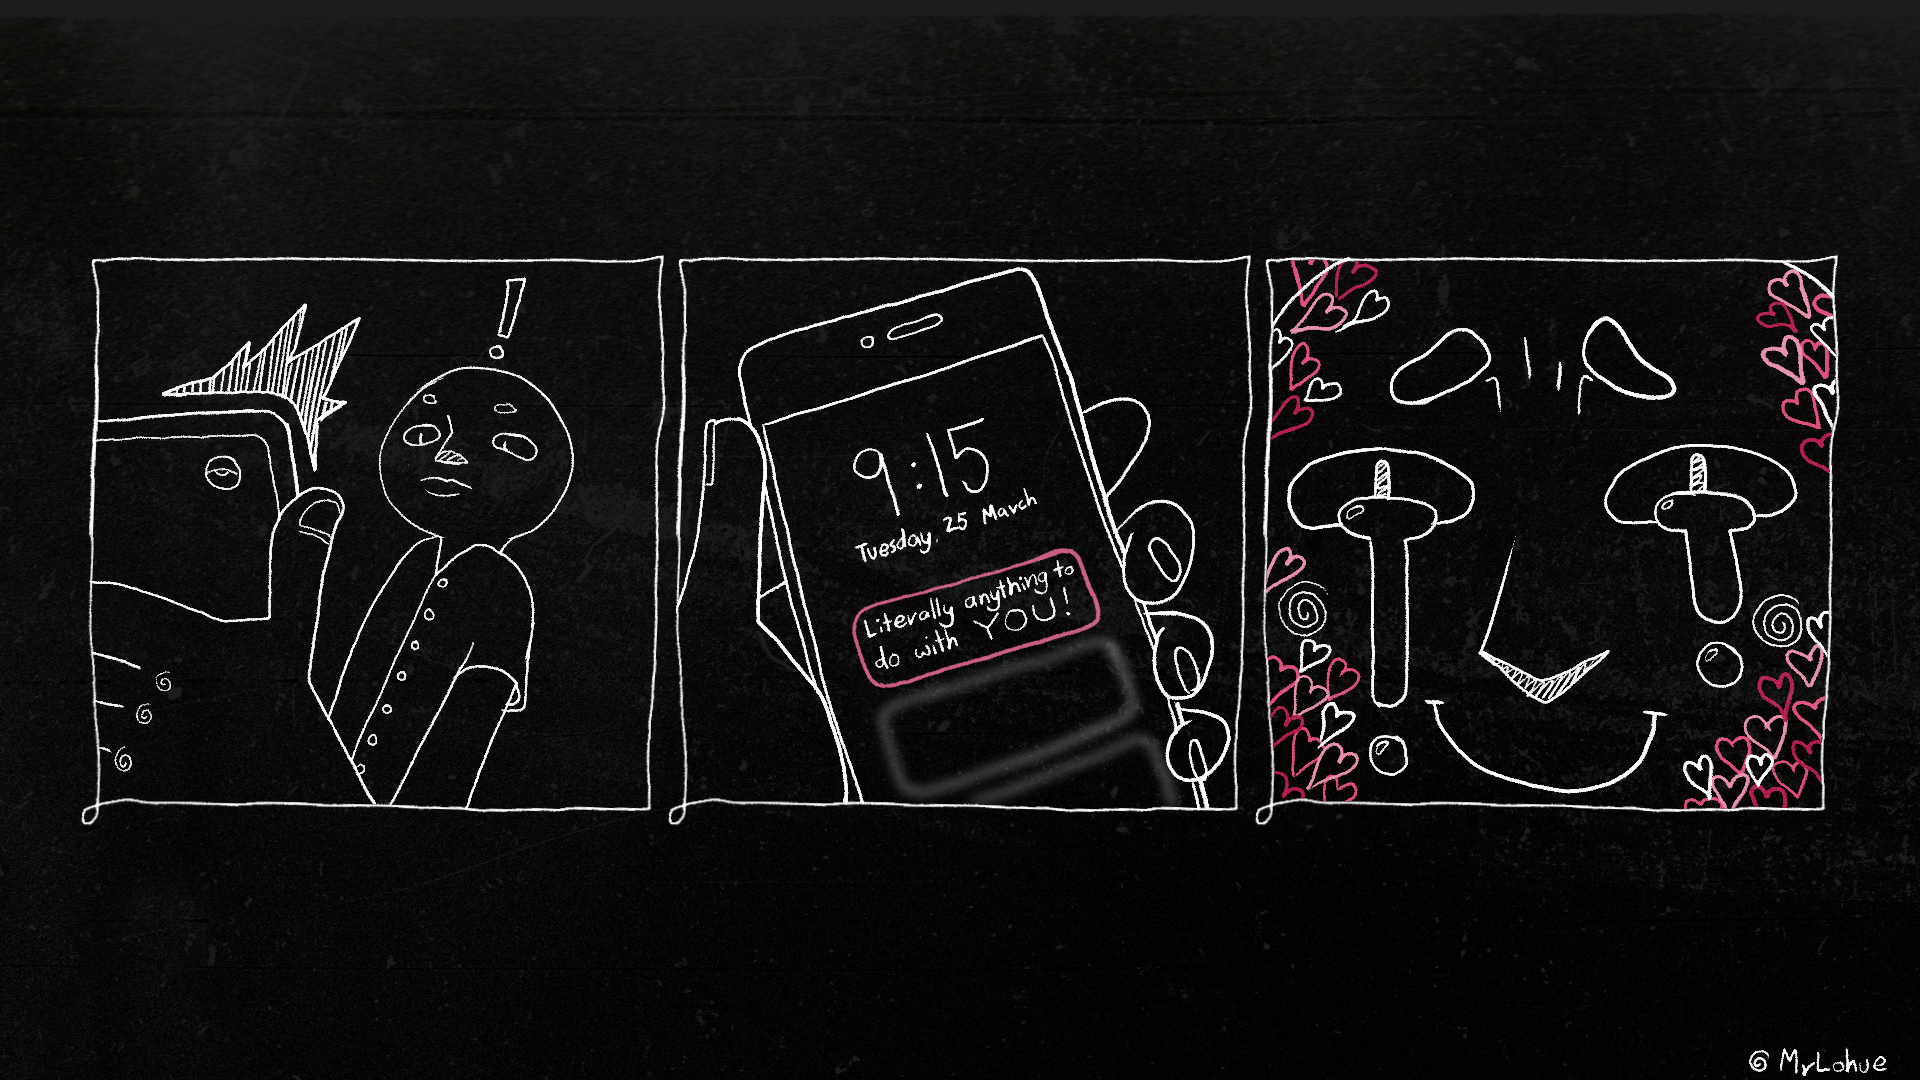 !
9:15
Tuesday. 25 March
Literally anything to
do with YOU!
@ MrLohue